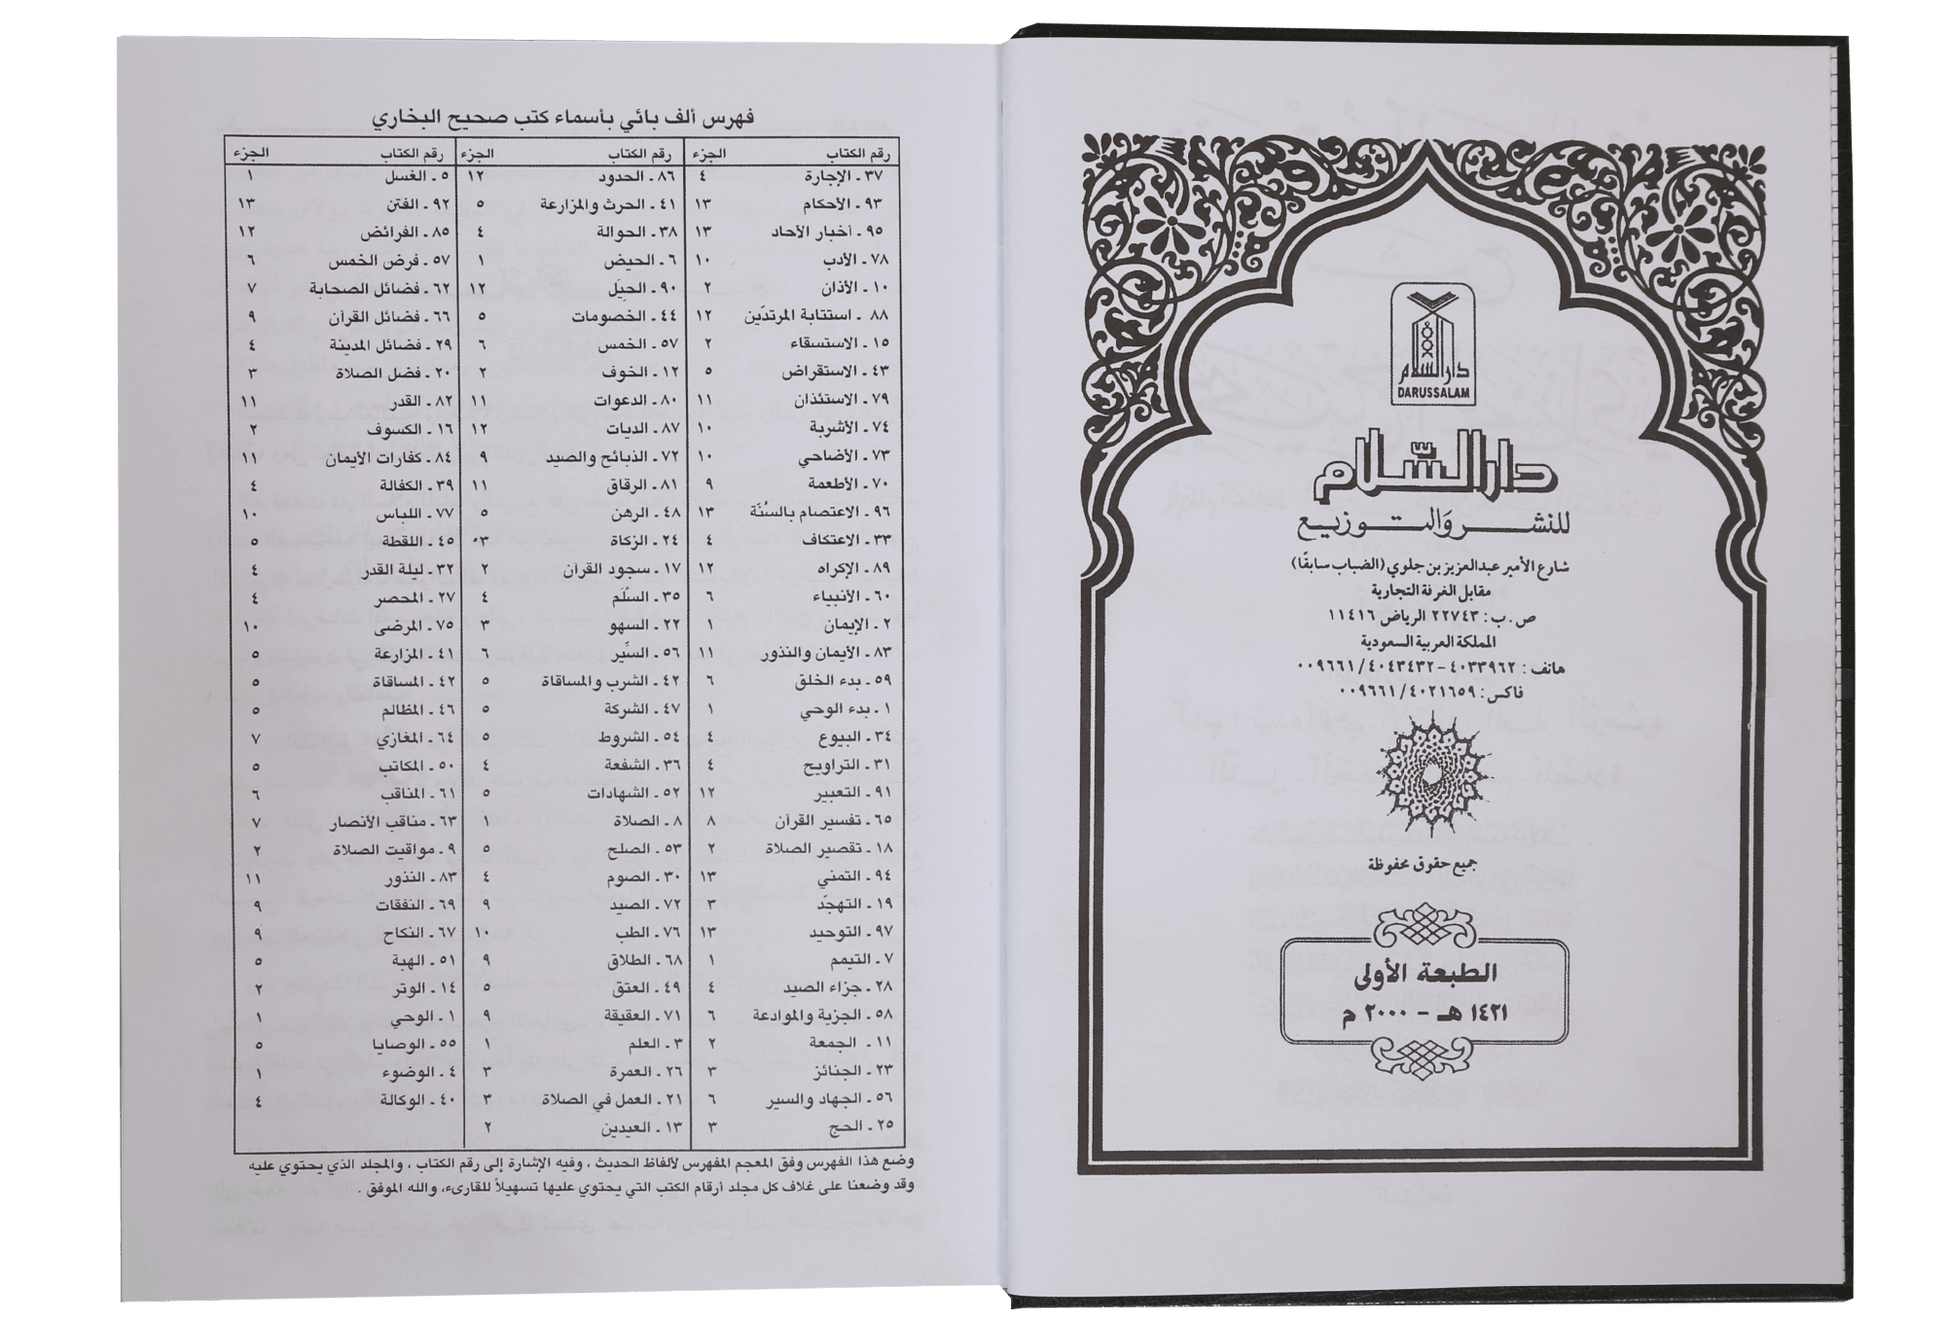 دار السلام
DARUSSALAM
دار السلام
للنشر والتوزيع
شارع الأمير عبدالعزيز بن جلوي (الضباب سابقًا)
مقابل الغرفة التجارية
ص.ب: ٢٢٧٤٣ الرياض ١١٤١٦
المملكة العربية السعودية
هاتف: ٤٠٣٣٩٦٢-٠٠٩٦٦١/٤٠٤٣٤٣٢
فاكس: ٠٠٩٦٦١/٤٠٢١٦٥٩
جميع حقوق محفوظة
الطبعة الأولى
١٤٢١ هـ - ٢٠٠٠ م
فهرس ألف بائي بأسماء كتب صحيح البخاري
رقم الكتاب الجزء رقم الكتاب الجزء رقم الكتاب الجزء
٣٧ـ الإجارة ٤ ٨٦ـ الحدود ١٢ ٥ـ الغسل ١
٩٣ـ الأحكام ١٣ ٤١ـ الحرث والمزارعة ٥ ٩٢ـ الفتن ١٣
٩٥ـ أخبار الآحاد ١٣ ٣٨ـ الحوالة ٤ ٨٥ـ الفرائض ١٢
٧٨ـ الأدب ١٠ ٦ـ الحيض ١ ٥٧ـ فرض الخمس ٦
١٠ـ الأذان ٢ ٩٠ـ الحيَل ١٢ ٦٢ـ فضائل الصحابة ٧
٨٨ ـ استتابة المرتدّين ١٢ ٤٤ـ الخصومات ٥ ٦٦ـ فضائل القرآن ٩
١٥ـ الاستسقاء ٢ ٥٧ـ الخمس ٦ ٢٩ـ فضائل المدينة ٤
٤٣ـ الاستقراض ٥ ١٢ـ الخوف ٢ ٢٠ـ فضل الصلاة ٣
٧٩ـ الاستئذان ١١ ٨٠ـ الدعوات ١١ ٨٢ـ القدر ١١
٧٤ـ الأشربة ١٠ ٨٧ـ الديات ١٢ ١٦ـ الكسوف ٢
٧٣ـ الأضاحي ١٠ ٧٢ـ الذبائح والصيد ٩ ٨٤ـ كفارات الأيمان ١١
٧٠ـ الأطعمة ٩ ٨١ـ الرقاق ١١ ٣٩ـ الكفالة ٤
٩٦ـ الاعتصام بالسُنّة ١٣ ٤٨ـ الرهن ٥ ٧٧ـ اللباس ١٠
٣٣ـ الاعتكاف ٤ ٢٤ـ الزكاة ٠٣ ٤٥ـ اللقطة ٥
٨٩ـ الإكراه ١٢ ١٧ـ سجود القرآن ٢ ٣٢ـ ليلة القدر ٤
٦٠ـ الأنبياء ٦ ٣٥ـ السَّلَم ٤ ٢٧ـ المحصر ٤
٢ـ الإيمان ١ ٢٢ـ السهو ٣ ٧٥ـ المرضى ١٠
٨٣ـ الأيمان والنذور ١١ ٥٦ـ السِّيَر ٦ ٤١ـ المزارعة ٥
٥٩ـ بدء الخلق ٦ ٤٢ـ الشرب والمساقاة ٥ ٤٢ـ المساقاة ٥
١ـ بدء الوحي ١ ٤٧ـ الشركة ٥ ٤٦ـ المظالم ٥
٣٤ـ البيوع ٤ ٥٤ـ الشروط ٥ ٦٤ـ المغازي ٧
٣١ـ التراويح ٤ ٣٦ـ الشفعة ٤ ٥٠ـ المكاتب ٥
٩١ـ التعبير ١٢ ٥٢ـ الشهادات ٥ ٦١ـ المناقب ٦
٦٥ـ تفسير القرآن ٨ ٨ـ الصلاة ١ ٦٣ـ مناقب الأنصار ٧
١٨ـ تقصير الصلاة ٢ ٥٣ـ الصلح ٥ ٩ـ مواقيت الصلاة ٢
٩٤ـ التمني ١٣ ٣٠ـ الصوم ٤ ٨٣ـ النذور ١١
١٩ـ التهجّد ٣ ٧٢ـ الصيد ٩ ٦٩ـ النفقات ٩
٩٧ـ التوحيد ١٣ ٧٦ـ الطب ١٠ ٦٧ـ النكاح ٩
٧ـ التيمم ١ ٦٨ـ الطلاق ٩ ٥١ـ الهبة ٥
٢٨ـ جزاء الصيد ٤ ٤٩ـ العتق ٥ ١٤ـ الوتر ٢
٥٨ـ الجزية والموادعة ٦ ٧١ـ العقيقة ٩ ١ـ الوحي ١
١١ ـ الجمعة ٢ ٣ـ العلم ١ ٥٥ـ الوصايا ٥
٢٣ـ الجنائز ٣ ٢٦ـ العمرة ٣ ٤ـ الوضوء ١
٥٦ـ الجهاد والسير ٦ ٢١ـ العمل في الصلاة ٣ ٤٠ـ الوكالة ٤
٢٥ـ الحج ٣ ١٣ـ العيدين ٢
وضع هذا الفهرس وفق المعجم المفهرس لألفاظ الحديث ، وفيه الإشارة إلى رقم الكتاب ، والمجلد الذي يحتوي عليه
وقد وضعنا على غلاف كل مجلد أرقام الكتب التي يحتوي عليها تسهيلاً للقارىء، والله الموفق .